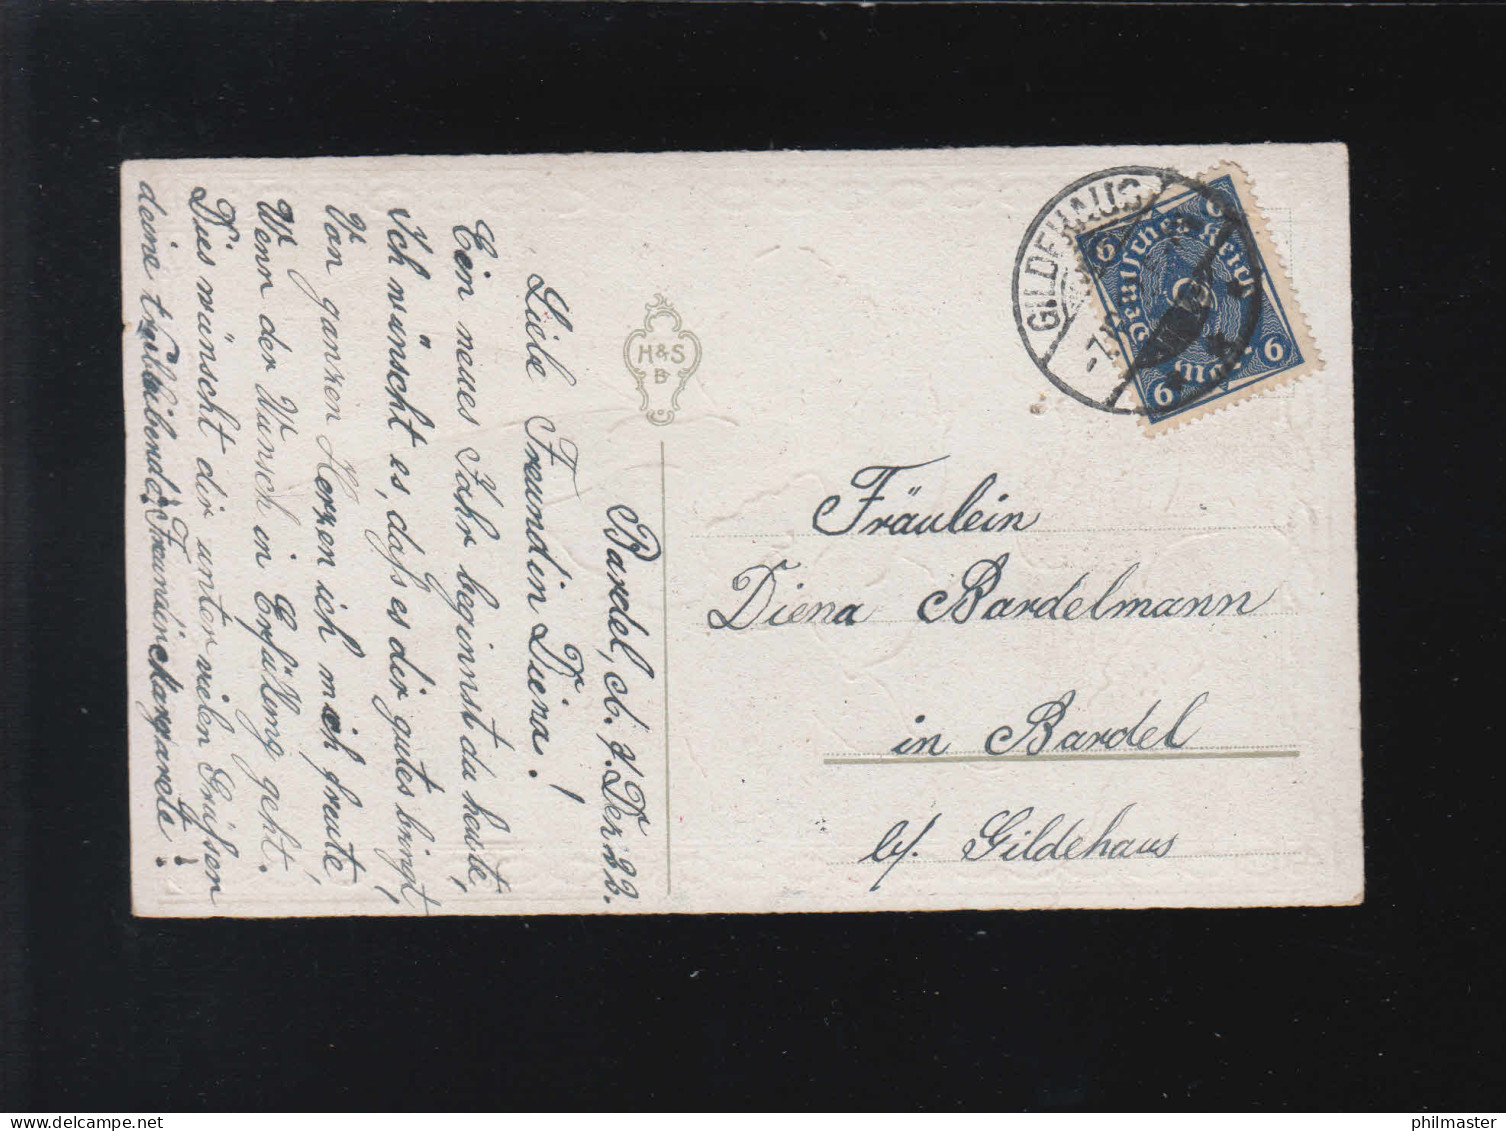 Bardel, d. 7. Dez 22.
Liebe Freundin Diena!
Ein neues Jahr beginnst du heute,
Ich wünscht es, daß es dir gutes bringt,
Van ganzen Herzen ich mich freute,
Wenn der Wunsch in Erfüllung geht.
Dies wünscht dir unter vielen Grüßen
deine treubleibende Freundin Margarete!
H&S
B
GILDEHAUS
6
6
6
6
Deutsches Reich
Fräulein
Diena Bardelmann
in Bardel
b/. Gildehaus
philmaster